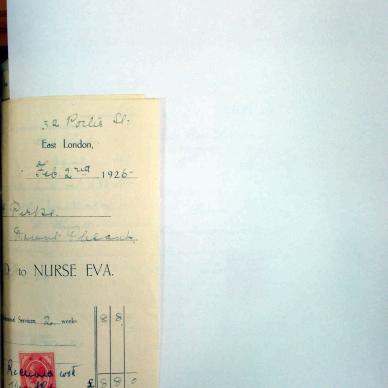 32 Porter St.
East London,
Feb 2nd 1926
Perks.
Mount Pleasant
D. to NURSE EVA.
ional Services 2 weeks 8 8
Received with
£ 8 8 0